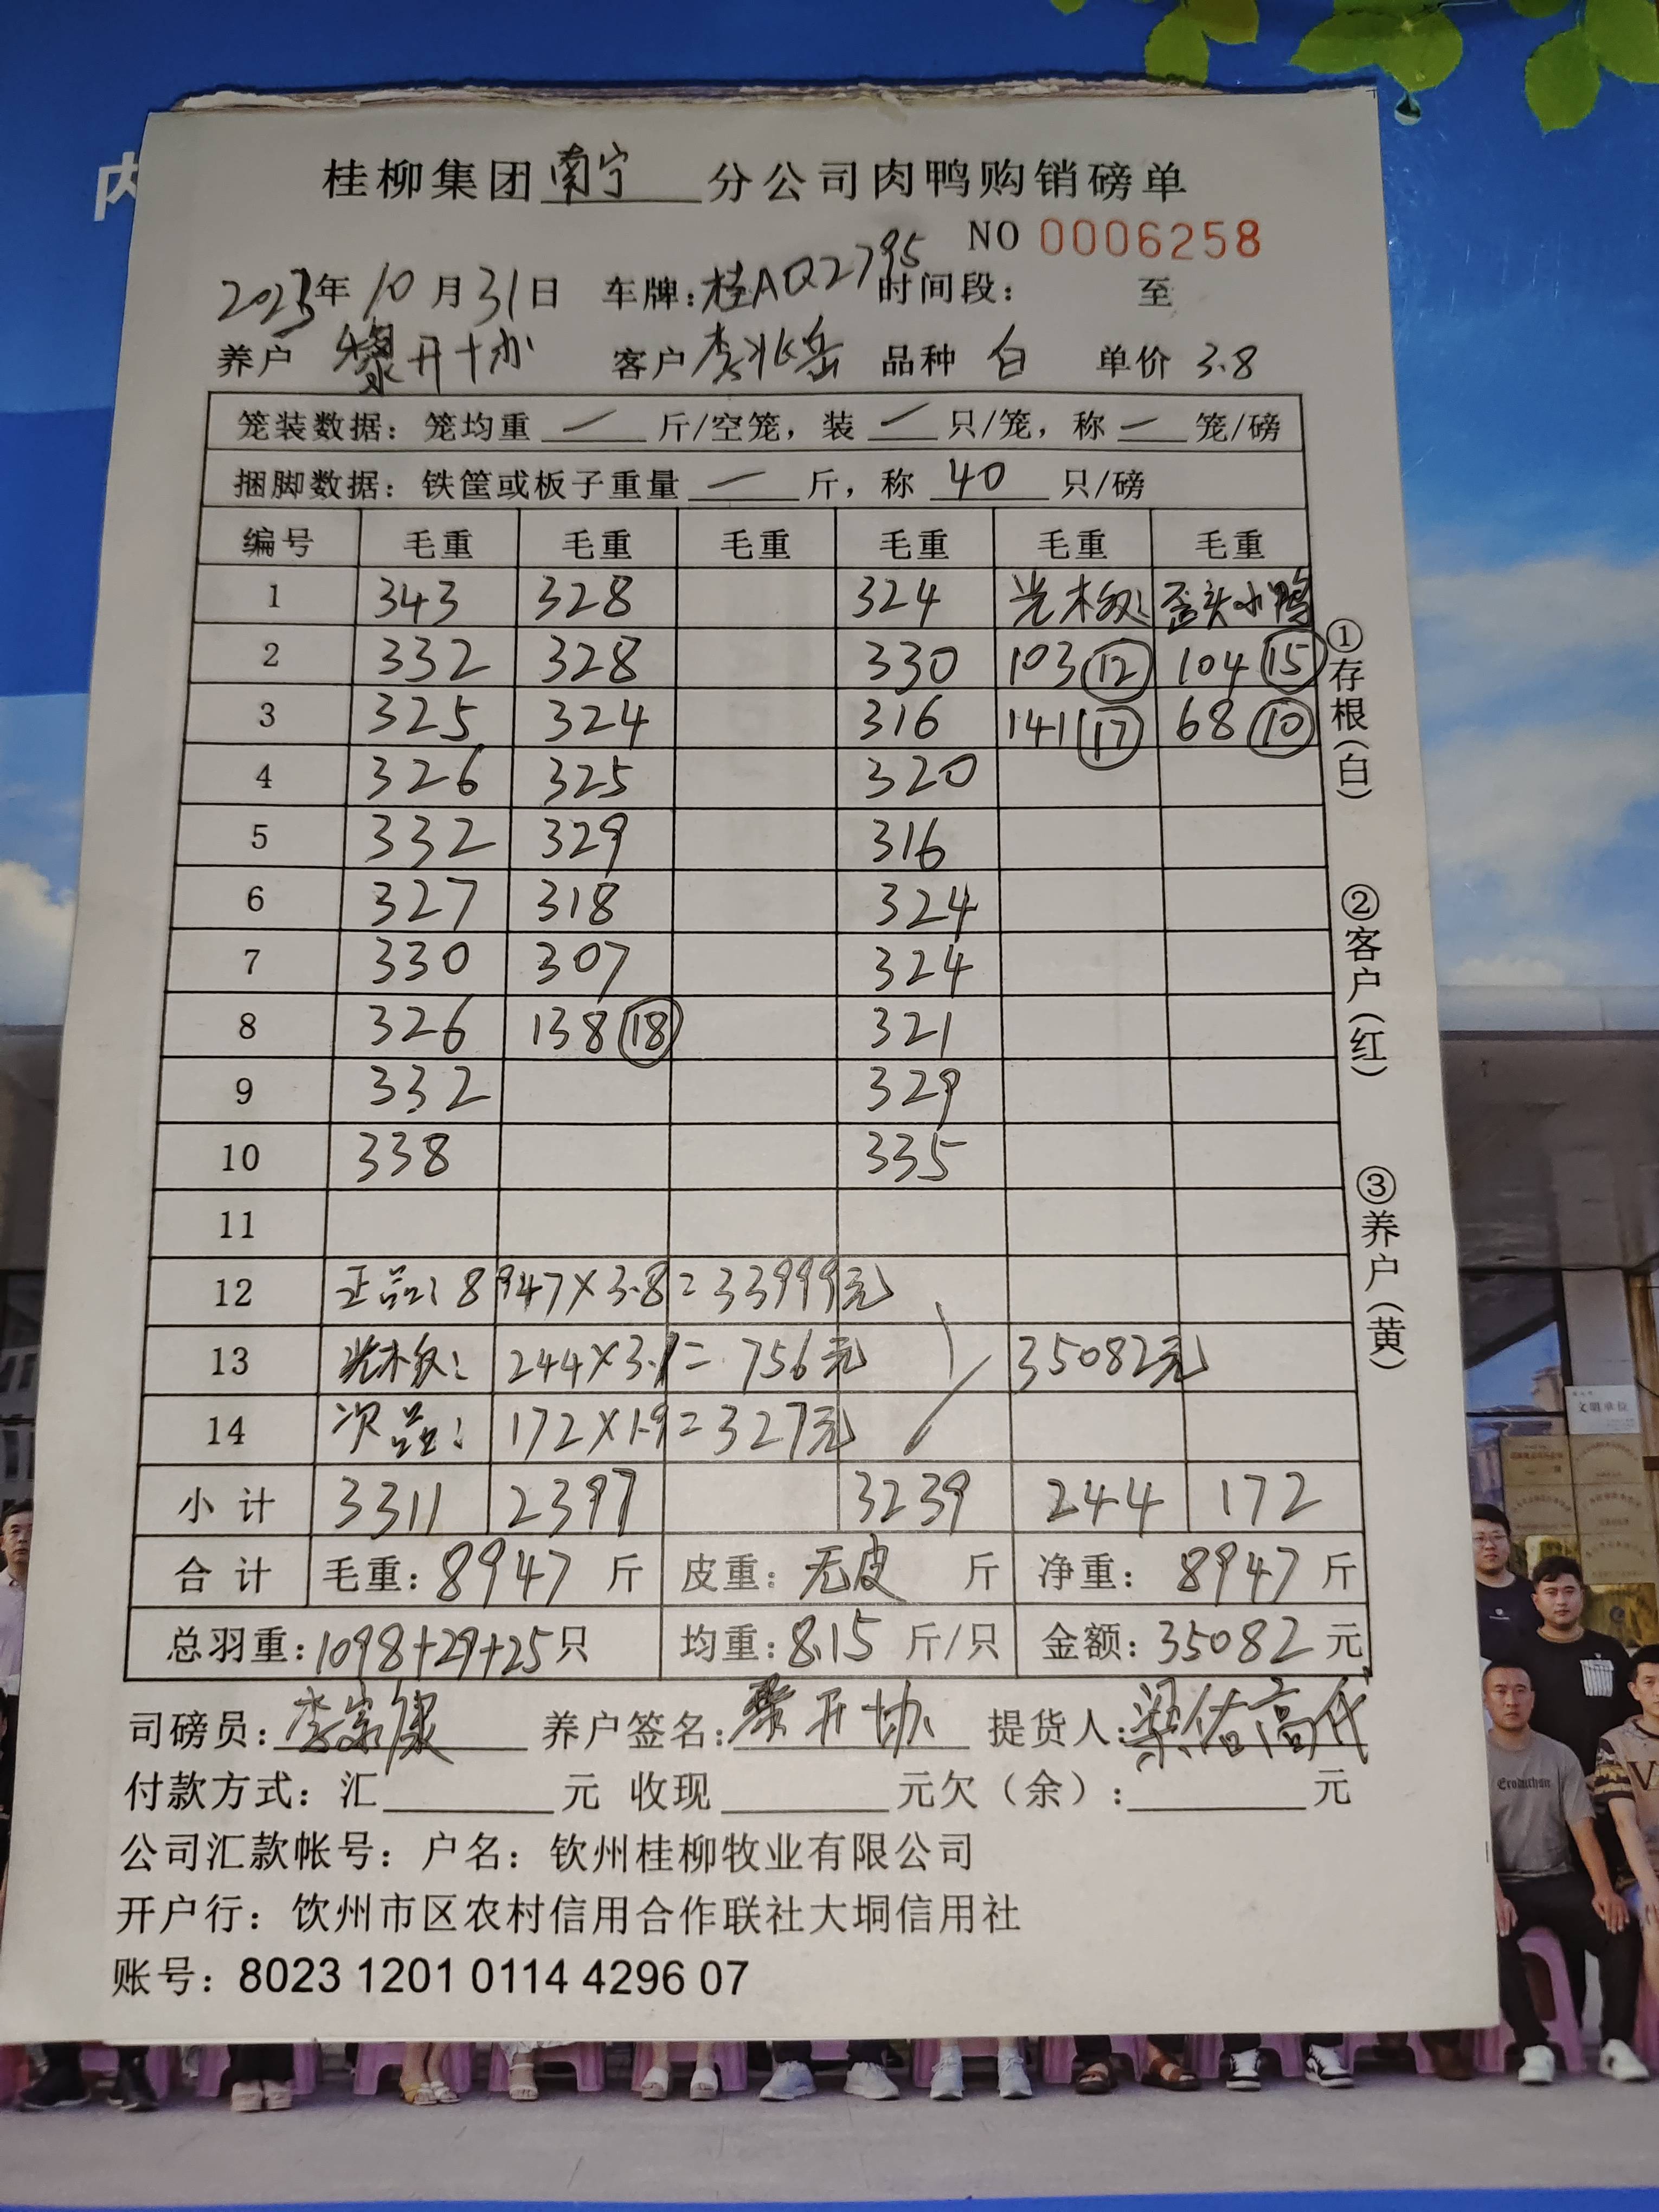 内
桂柳集团南宁分公司肉鸭购销磅单
NO 0006258
2023年10月31日 车牌:桂AQ2795 时间段: 至
养户 黎开协 客户 李兆岳 品种 白 单价 3.8
笼装数据: 笼均重 一 斤/空笼, 装 一 只/笼, 称 一 笼/磅
捆脚数据: 铁筐或板子重量 一 斤, 称 40 只/磅
编号 毛重 毛重 毛重 毛重 毛重 毛重
1 343 328 324 光木 歪头小鸭
2 332 328 330 103 12 104 15
3 325 324 316 141 17 68 10
4 326 325 320
5 332 329 316
6 327 318 324
7 330 307 324
8 326 138 18 321
9 332 329
10 338 335
11
12 正品: 8947×3.8=33999元
13 光木: 244×3.1=756元 35082元
14 次品: 172×1.9=327元
小计 3311 2397 3239 244 172
合计 毛重: 8947 斤 皮重: 无皮 斤 净重: 8947 斤
总羽重: 1098+29+25只 均重: 8.15 斤/只 金额: 35082 元
司磅员: 李家康 养户签名: 黎开协 提货人: 梁佑高代
付款方式: 汇 元 收现 元欠(余): 元
公司汇款帐号: 户名: 钦州桂柳牧业有限公司
开户行: 饮州市区农村信用合作联社大垌信用社
账号: 8023 1201 0114 4296 07
①存根(白)
②客户(红)
③养户(黄)
文明单位